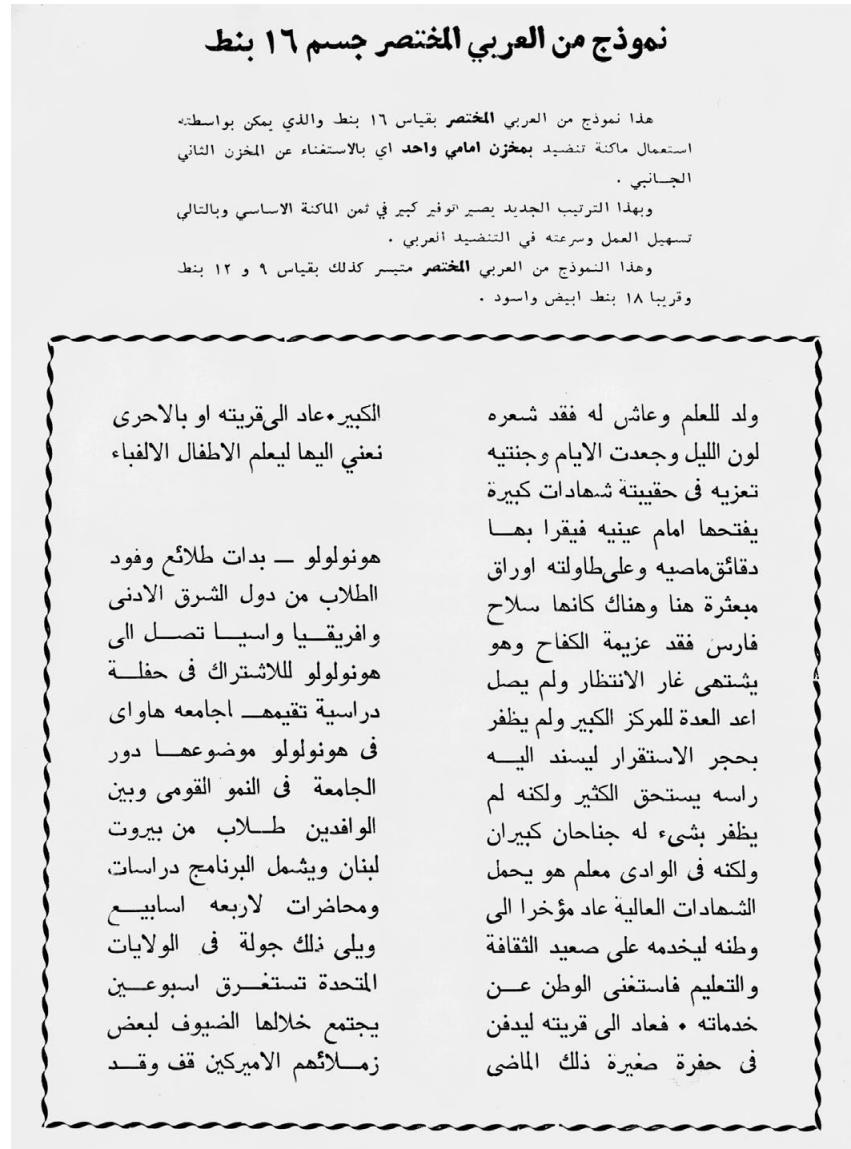 نموذج من العربي المختصر جسم ١٦ بنط
هذا نموذج من العربي المختصر بقياس ١٦ بنط والذي يمكن بواسطته
استعمال ماكنة تنضيد بمخزن امامي واحد اي بالاستغناء عن المخزن الثاني
الجـــانبي .
وبهذا الترتيب الجديد يصير توفير كبير في ثمن الماكنة الاساسي وبالتالي
تسهيل العمل وسرعته في التنضيد العربي .
وهذا النموذج من العربي المختصر متيسر كذلك بقياس ٩ و ١٢ بنط
وقريبا ١٨ بنط ابيض واسود .
ولد للعلم وعاش له فقد شعره
لون الليل وجعدت الايام وجنتيه
تعزيه فى حقيبتة شهادات كبيرة
يفتحها امام عينيه فيقرا بهـــا
دقائق ماصيه وعلى طاولته اوراق
مبعثرة هنا وهناك كانها سلاح
فارس فقد عزيمة الكفاح وهو
يشتهى غار الانتظار ولم يصل
اعد العدة للمركز الكبير ولم يظفر
بحجر الاستقرار ليسند اليـــه
راسه يستحق الكثير ولكنه لم
يظفر بشىء له جناحان كبيران
ولكنه فى الوادى معلم هو يحمل
الشهادات العالية عاد مؤخرا الى
وطنه ليخدمه على صعيد الثقافة
والتعليم فاستغنى الوطن عـــن
خدماته • فعاد الى قريته ليدفن
فى حفرة صغيرة ذلك الماضى
الكبير • عاد الى قريته او بالاحرى
نعني اليها ليعلم الاطفال الالفباء
هونولولو — بدات طلائع وفود
االطلاب من دول الشرق الادنى
وافريقـــيا واسيـــا تصـــل الى
هونولولو لللاشتراك فى حفلـــة
دراسية تقيمهـــ اجامعه هاواى
فى هونولولو موضوعهـــا دور
الجامعة فى النمو القومى وبين
الوافدين طـــلاب من بيروت
لبنان ويشمل البرنامج دراسات
ومحاضرات لاربعه اسابيـــع
ويلى ذلك جولة فى الولايات
المتحدة تستغـــرق اسبوعـــين
يجتمع خلالها الضيوف لبعض
زمـــلائهم الاميركين قف وقـــد